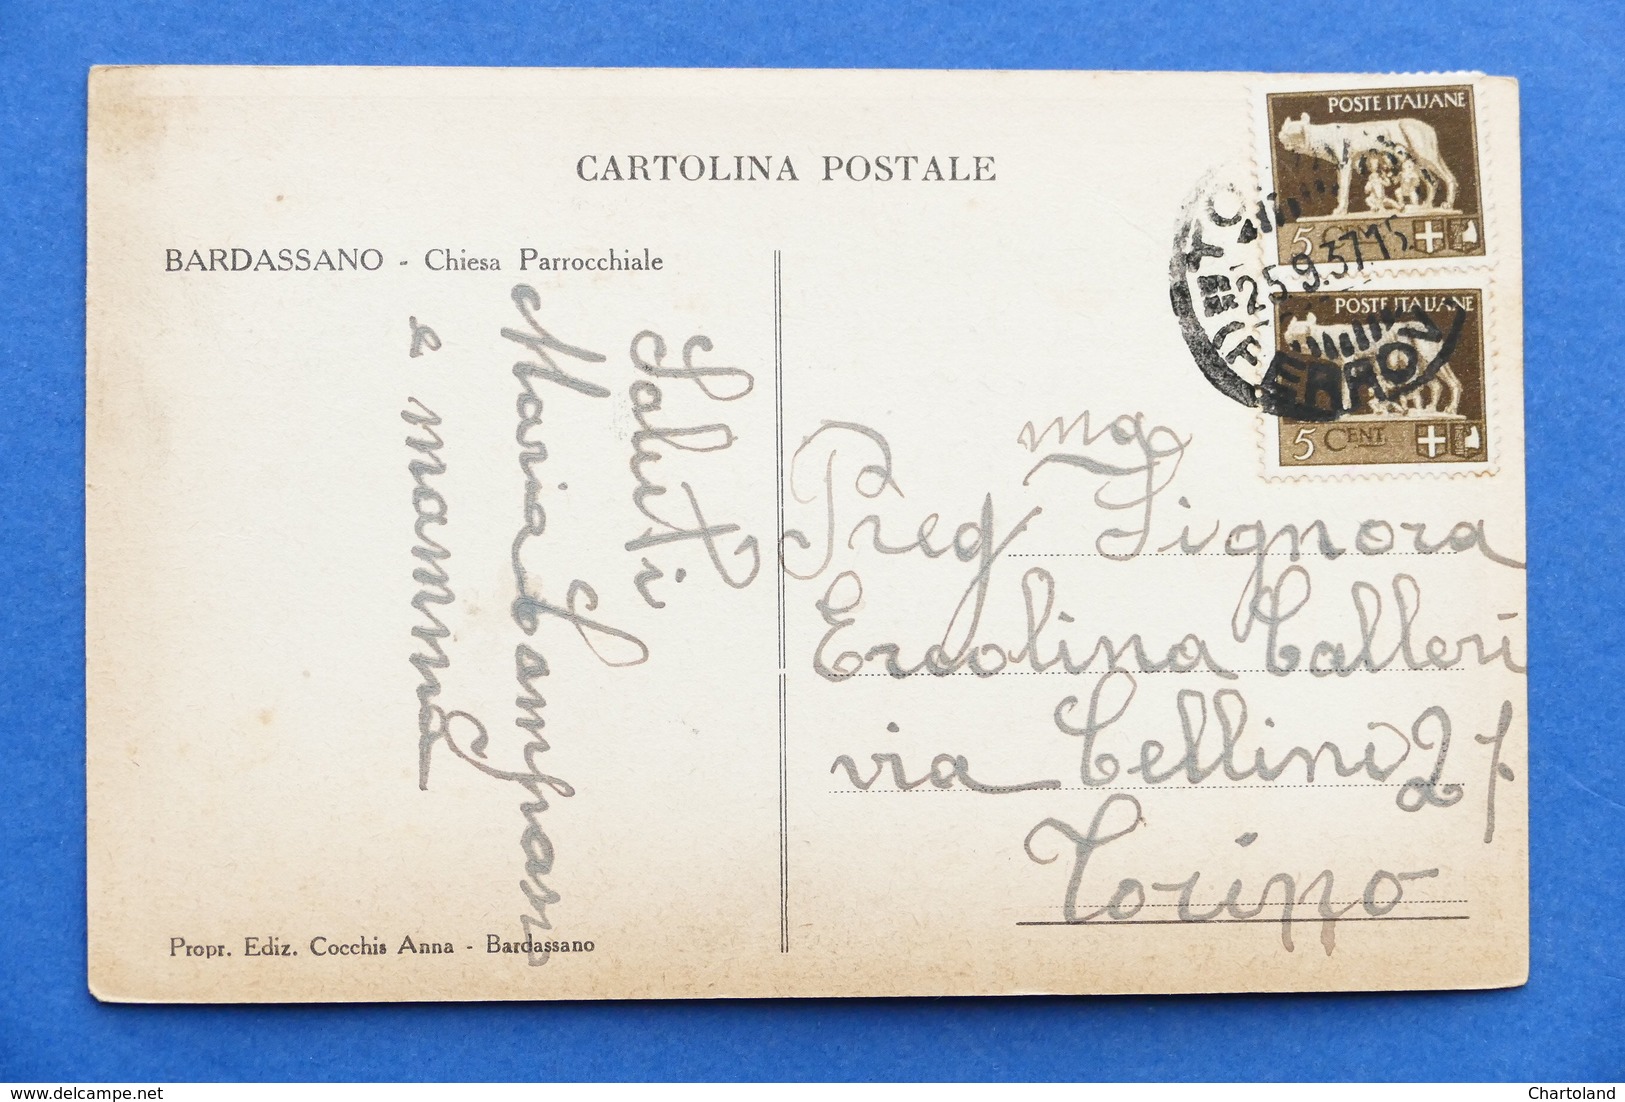 CARTOLINA POSTALE
POSTE ITALIANE
5 CENT.
POSTE ITALIANE
5 CENT.
25.9.37.15
BARDASSANO - Chiesa Parrocchiale
Saluti
Maria
e mamma
Preg ma Signora
Ercolina Calleri
via Cellini 27
Torino
Propr. Ediz. Cocchis Anna - Bardassano
Chartoland